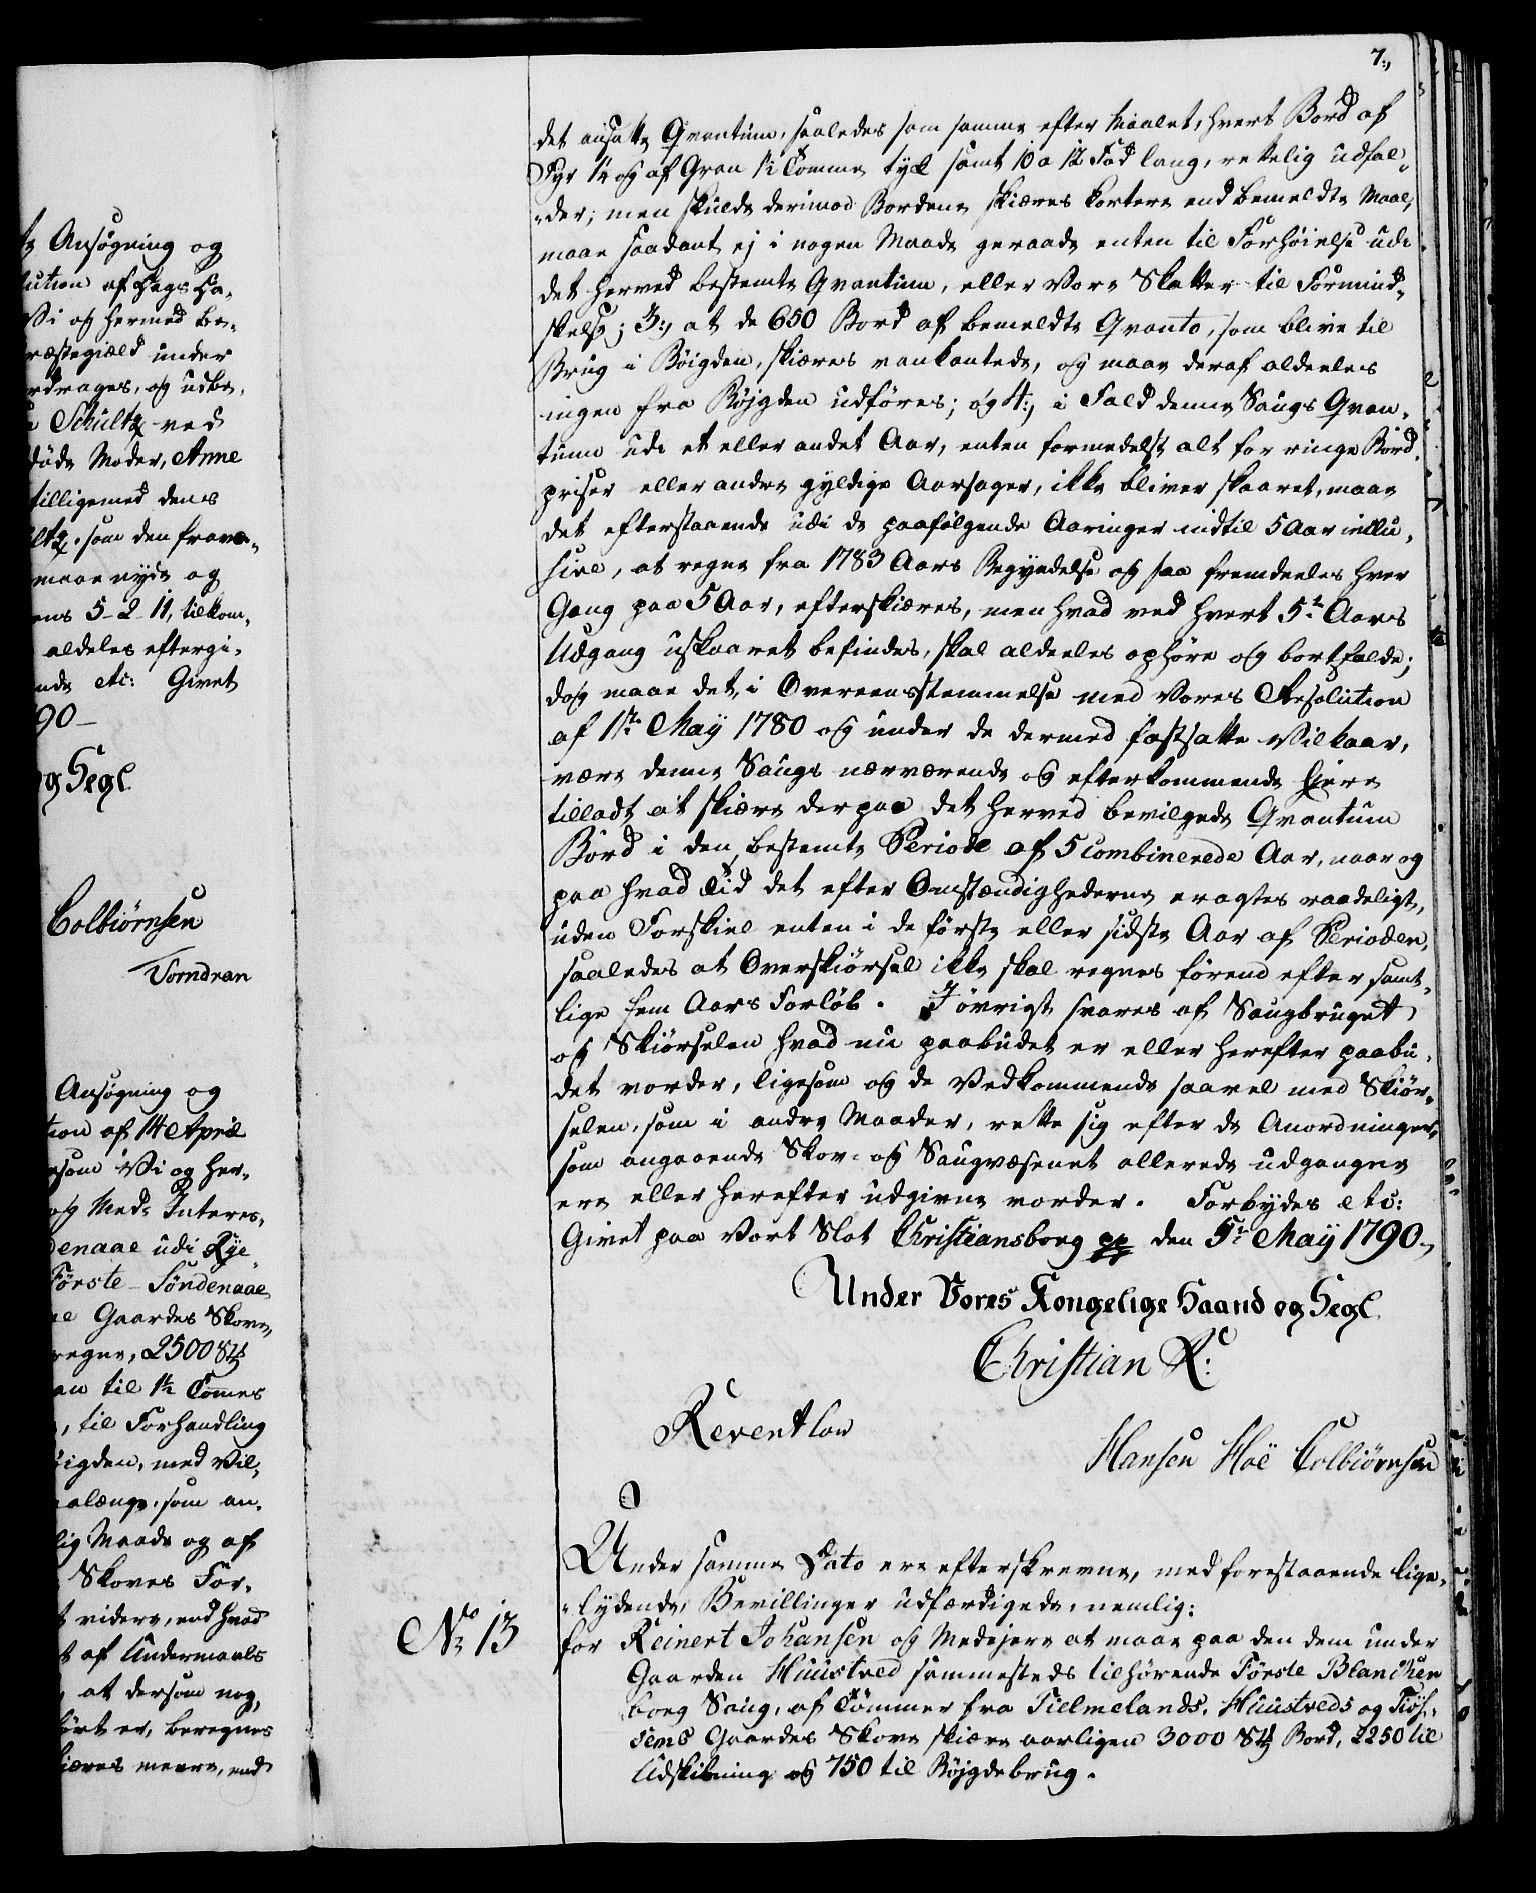 7.,
te Ansøgning og
lution af Dags Da,
Vi og hermed be,
Præstegield under
rdrages, og udbe,
n Schültz ved
døde Moder, Anne
tilligemed dens
ültz, som den frava,
maae nyde og
ens 5-2-11, tilkom,
aldeles eftergi,
nde etc: Givet
90 —
og Segl
Colbiørnsen
Vomdran
Ansøgning og
tion af 14 April
som Vi og her,
og Med-Interes,
denaae udi Rye
Første Søndenaae
ne Gaardes Skove,
regne, 2500 Stk
an til 1½ Tomes
, til Forhandling
øigden, med Vil,
alænge, som an,
lig Maade og af
Skoves For,
t videre, end hvad
t af Undermaals
at dersom nog,
ført er, beregnes
kiæres meere, end
det ansatte Qvantum, saaledes som samme efter Maalet, hvert Bord af
Fyr 1¼ og af Gran 1½ Tomme tyk samt 10 a 12 Fod lang, rettelig udfal,
der; men skulde derimod Bordene skiæres kortere end bemeldte Maal,
maae saadant ej i nogen Maade geraade enten til Forhøielse udi
det herved bestemte Qvantum, eller Vore Skatter til Formind,
skelse; 3., at de 650 Bord af bemeldte Qvanto, som blive til
Brug i Bøigden, skiæres vankantede, og maae deraf aldeeles
ingen fra Bøjgden udføres; og 4., i Fald denne Saugs Qvan,
tum udi et eller andet Aar, enten formedelst alt for ringe Bord,
priser eller andre gyldige Aarsager, ikke bliver skaaret, maae
det efterstaaende udi de paafølgende Aaringer indtil 5 Aar inclu,
sive, at regne fra 1783 Aars Begyndelse og saa fremdeeles hver
Gang paa 5 Aar, efterskiæres, men hvad ved hvert 5te Aars
Udgang uskaaret befindes, skal aldeeles ophøre og bortfalde;
dog maae det, i Overeensstemmelse med Vores Resolution
af 1ste May 1780 og under de dermed fastsatte Vilkaar,
være denne Saugs nærværende og efterkommende Eiere
tilladt at skiære derpaa det herved bevilgede Qvantum
Bord i den bestemte Periode af 5 combinerede Aar, naar og
paa hvad Tid det efter Omstændighederne eragtes raadeligt,
uden Forskiel enten i de første eller sidste Aar af Perioden,
saaledes at Overskiørsel ikke skal regnes førend efter samt,
lige fem Aars Forløb. I øvrigt svares af Saugbruget
og Skiørselen hvad nu paabudet er eller herefter paabu,
det vorder, ligesom og de Vedkommende saavel med Skiør,
selen, som i andre Maader, rette sig efter de Anordninger,
som angaaende Skov- og Saugvæsenet allerede udgangne
ere eller herefter udgivne vorder. Forbydes etc:
Givet paa Vort Slot Christiansborg pp den 5te May 1790.,
Under Vores Kongelige Haand og Segl
Christian R:
Reventlow
Hansen Hoë Colbiørnsen
Under samme Dato ere efterskrevne, med forestaaende lige,
lydende, Bevillinger udfærdigede, nemlig:
No 13
for Reinert Johansen og Medejere at maae paa den dem under
Gaarden Huustved sammesteds tilhørende Første Blanchen
borg Saug, af Tømmer fra Tielmelands, Huustveds og Tiøs,
tems Gaardes Skove skiære aarligen 3000 Stk Bord, 2250 til
Udskibning og 750 til Bøjgdebrug.